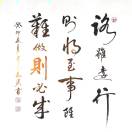 路雖遠行
則將至事雖
難做則必成